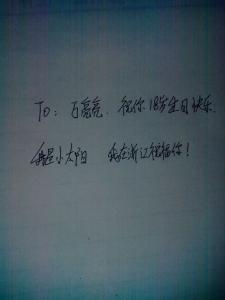 To: 万亮亮 祝你18岁生日快乐.
我是小太阳 我在浙江祝福你!